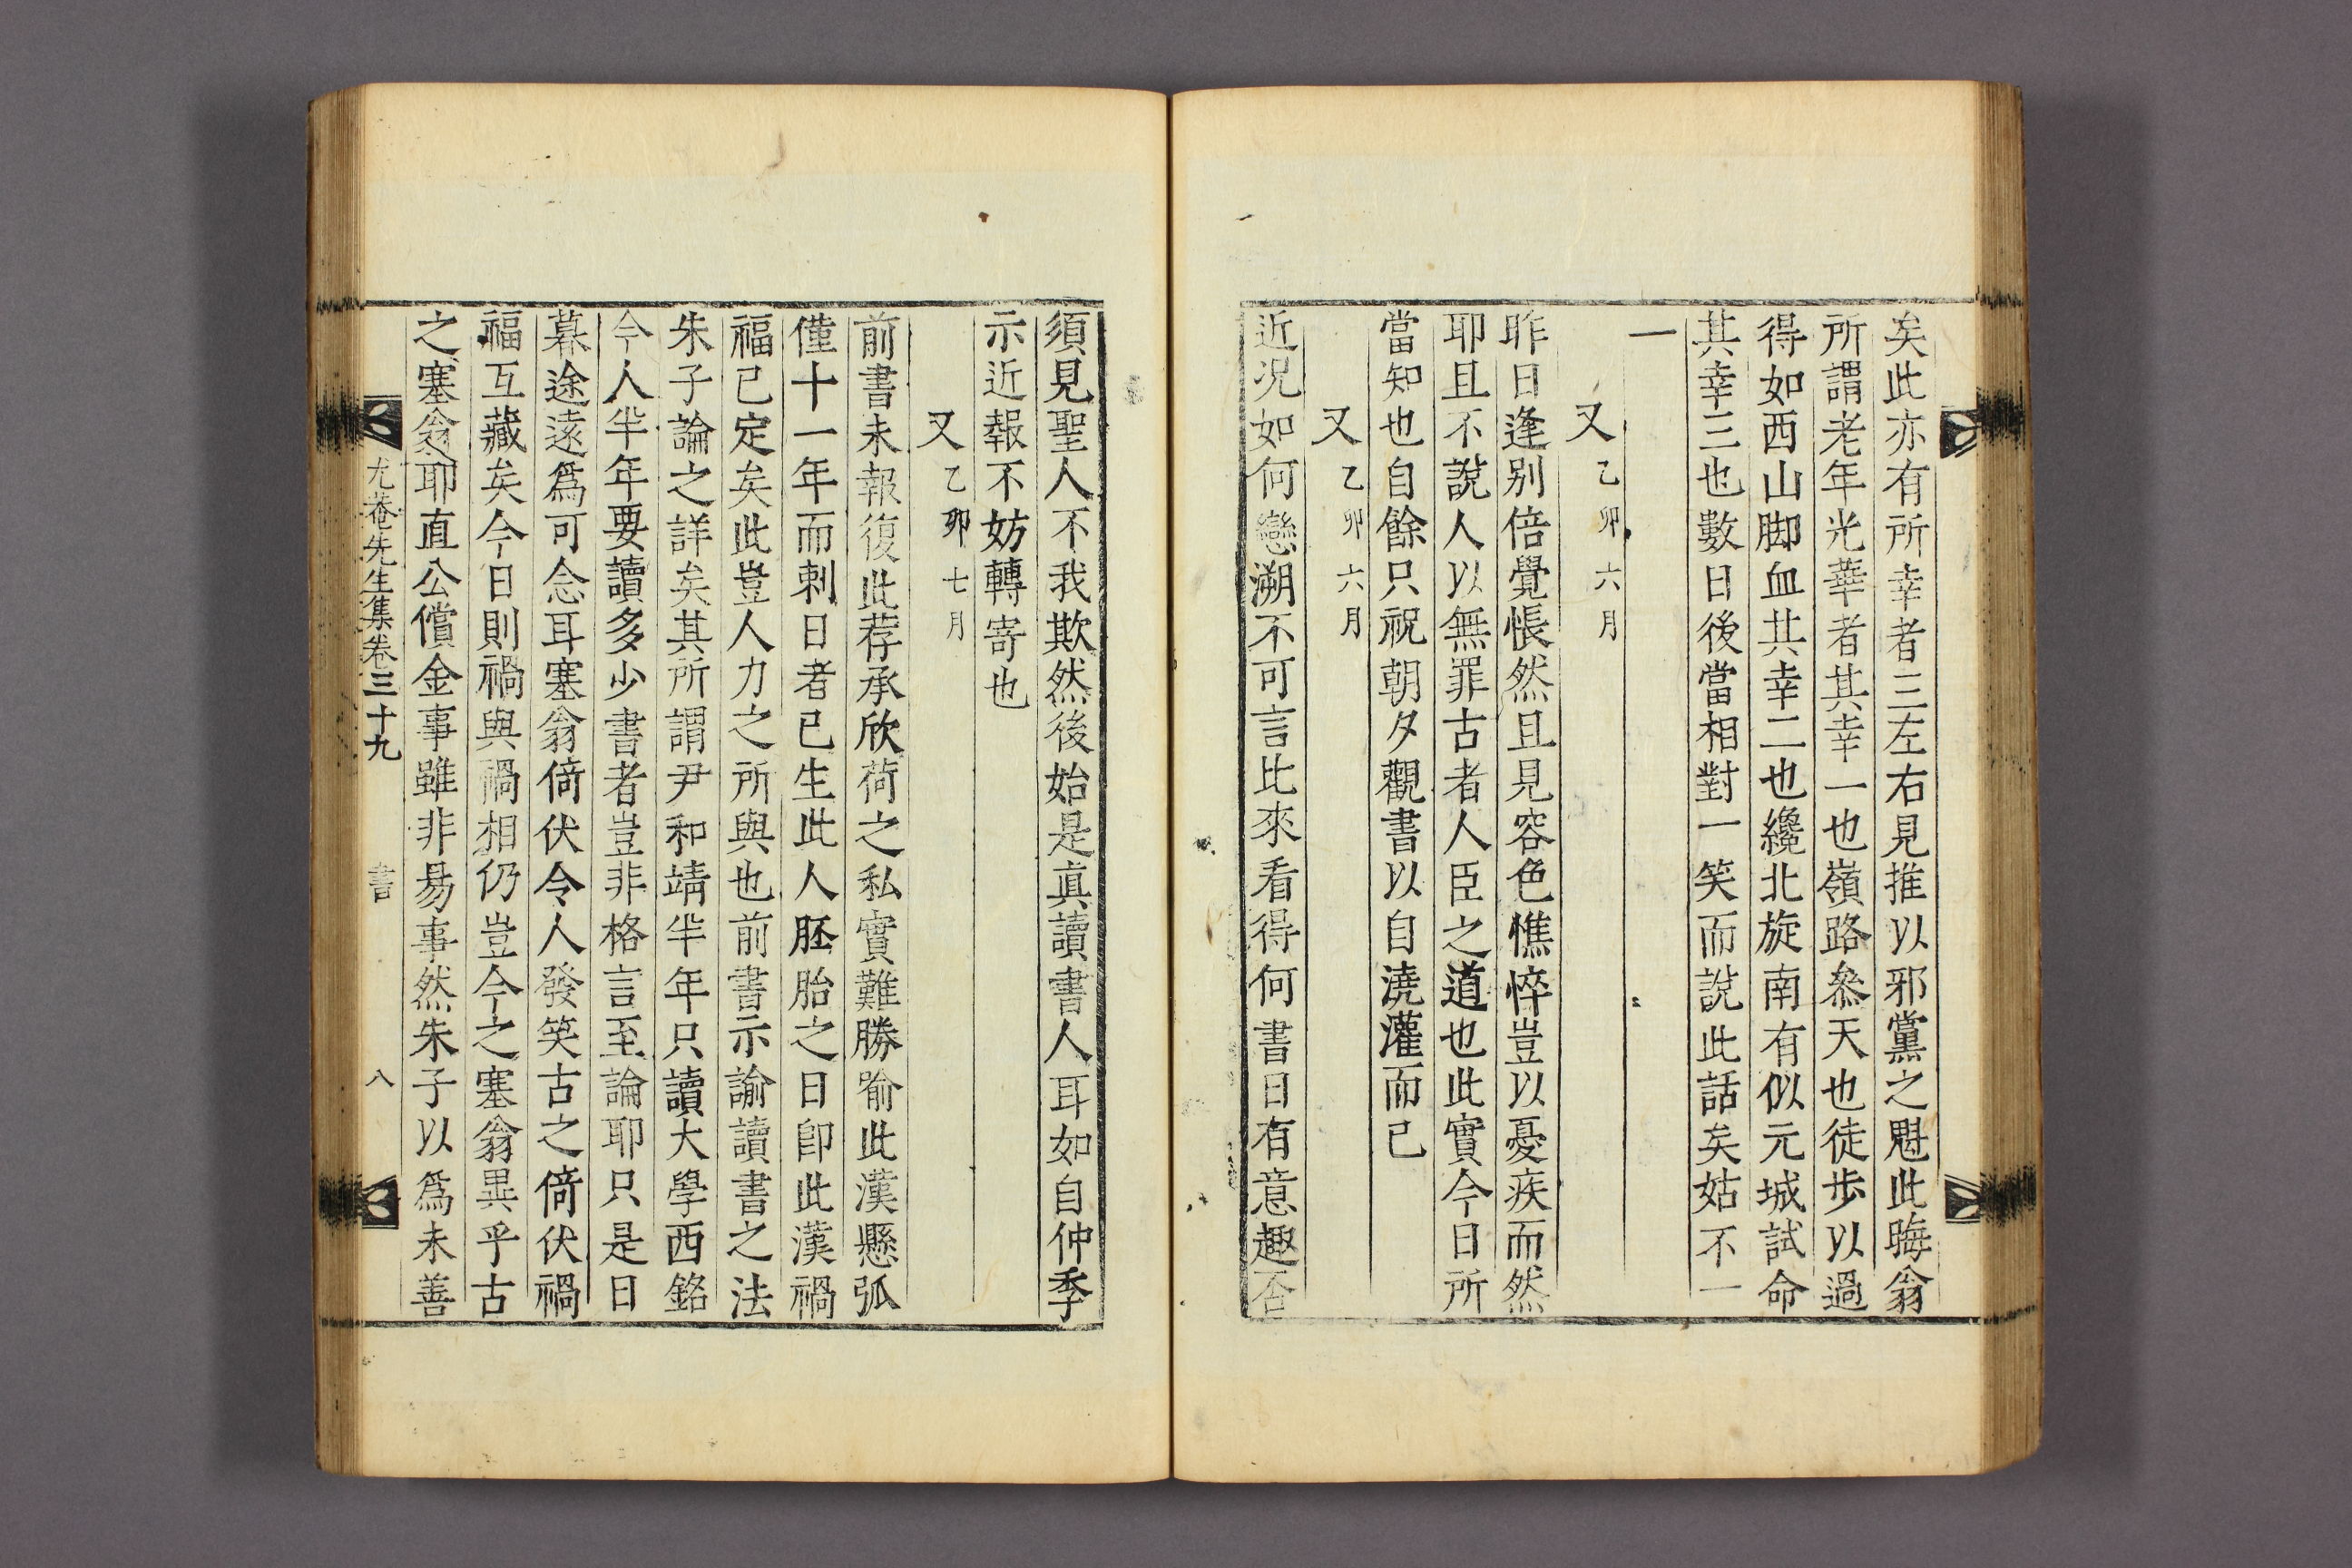 矣此亦有所幸者三左右見推以邪黨之魁此晦翁
所謂老年光華者其幸一也嶺路叅天也徒步以過
得如西山脚血其幸二也纔北旋南有似元城試命
其幸三也數日後當相對一笑而說此話矣姑不一
一
又乙卯六月
昨日逢别倍覺悵然且見容色憔悴豈以憂疾而然
耶且不說人以無罪古者人臣之道也此實今日所
當知也自餘只祝朝夕觀書以自澆灌而已
又乙卯六月
近况如何戀溯不可言比來看得何書日有意趣否
須見聖人不我欺然後始是眞讀書人耳如自仲季
示近報不妨轉寄也
又乙卯七月
前書未報復此荐承欣荷之私實難勝喻此漢懸弧
僅十一年而刺日者已生此人胚胎之日卽此漢禍
福已定矣此豈人力之所與也前書示諭讀書之法
朱子論之詳矣其所謂尹和靖半年只讀大學西銘
今人半年要讀多少書者豈非格言至論耶只是日
暮途遠爲可念耳塞翁倚伏令人發笑古之倚伏禍
福互藏矣今日則禍與禍相仍豈今之塞翁異乎古
之塞翁耶直公償金事雖非易事然朱子以爲未善
尤菴先生集卷三十九 書 八